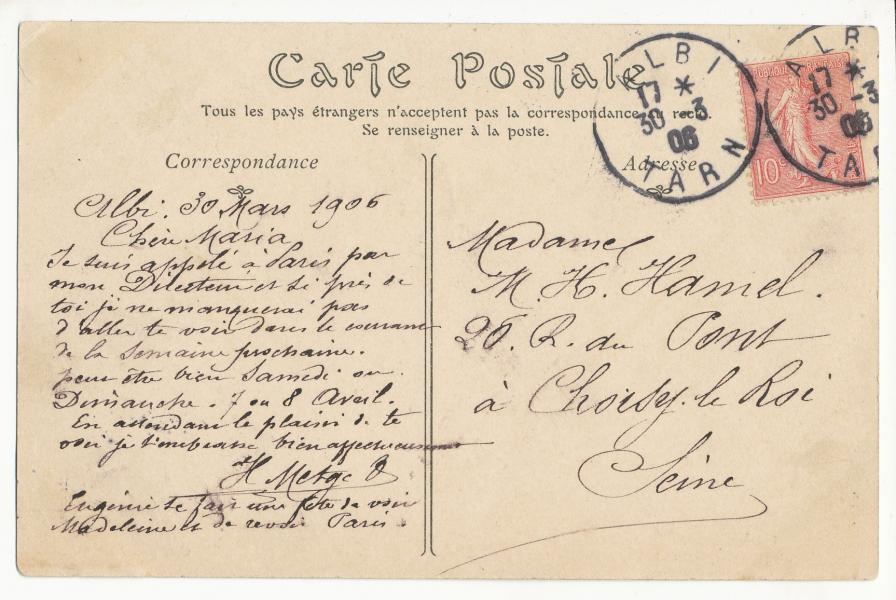 Carte Postale
Tous les pays étrangers n'acceptent pas la correspondance au recto.
Se renseigner à la poste.
Correspondance
Albi. 30 Mars 1906
Chère Maria
Je suis appelé à Paris par
mon Directeur et si près de
toi je ne manquerai pas
d'aller te voir dans le courant
de la semaine prochaine.
peut être bien Samedi ou
Dimanche. 7 ou 8 Avril.
En attendant le plaisir de te
voir je t'embrasse bien affectueusement
H Metge
Eugénie se fait une fête de voir
Madeleine et de revoir Paris
Adresse
Madame
M. H. Hamel.
26. R. du Pont
à Choisy. le Roi
Seine
ALBI
17 *
30 -3
06
TARN
ALB
17 *
30 -3
06
TA
10c